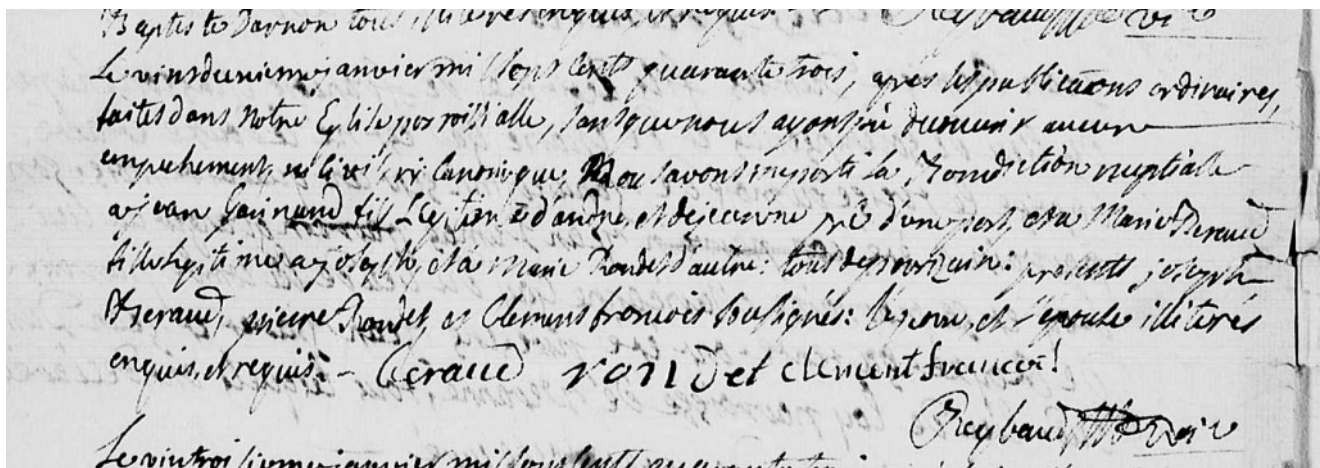 Baptiste Darnon tous illiteres enquis et requis. Reybaud vic
Le vinsdeuxieme janvier mil sept cents quarante trois, apres les publications ordinaires,
faites dans Notre Eglise parroissialle, sans que nous ayons pû decouvrir aucun
empechement, ni civil, ni Canonique, Nous avons imparti la Benediction nuptialle
a jean fils Legitime d'andre, et de d'une part, et a Marie Beraud
fille legitime a joseph, et a Marie Rondet d'autre: tous de : presents joseph
Beraud, pierre Rondet, et Clement francois soussignés: et l'epouse illiterés
enquis, et requis. - Beraud rondet clement francoi
Reybaud
Le vintroisieme janvier mil sept cents quarante trois